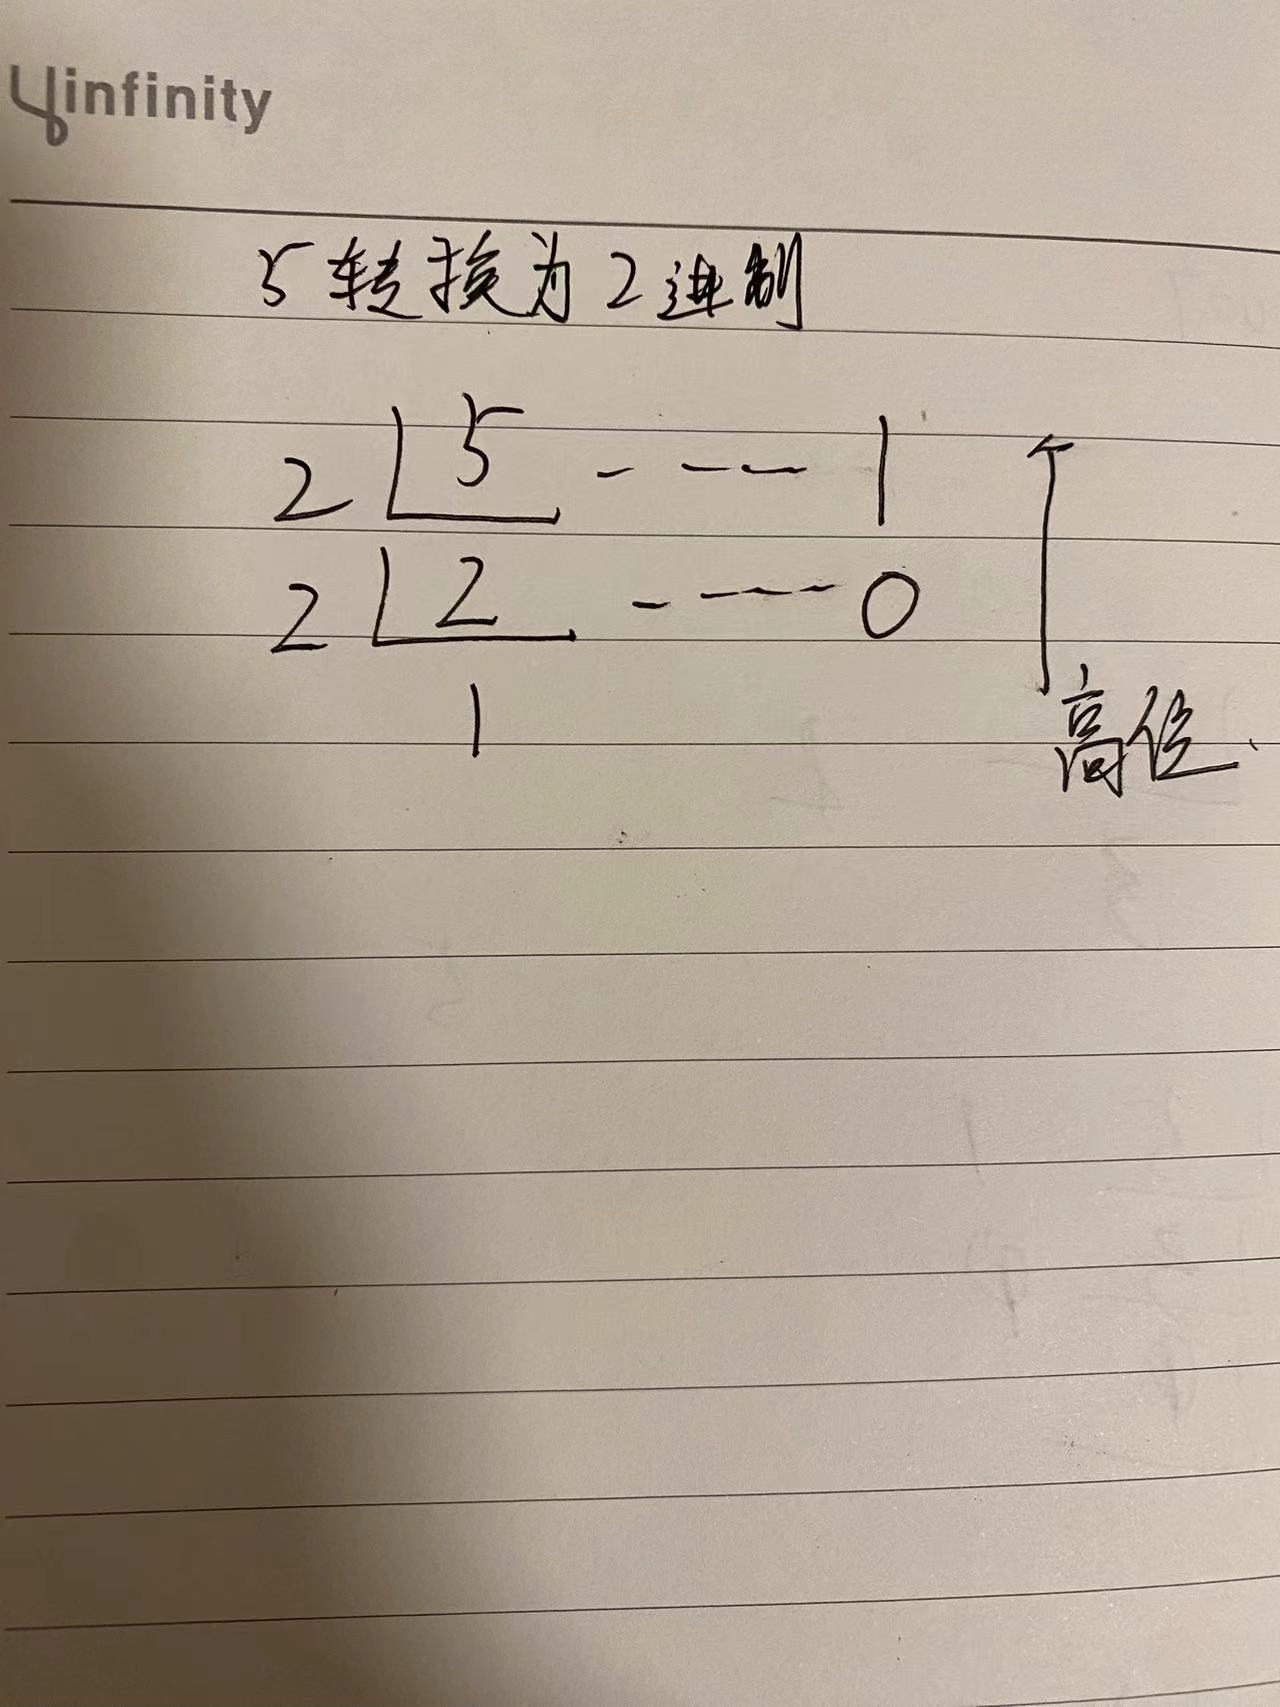 yinfinity
5转换为2进制
2 5 - --- 1
2 2 - ---- 0
1
高位